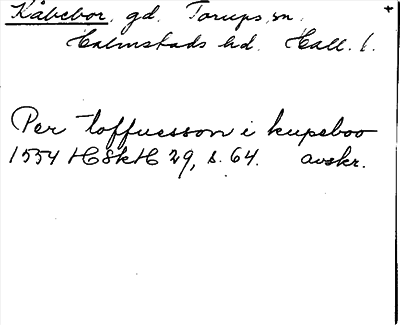 Kåbebor, gd. Torups sn. +
Halmstads hd. Hall. l.
Per toffuesson i kupeboo
1554 HSkH 29, s. 64. avskr.